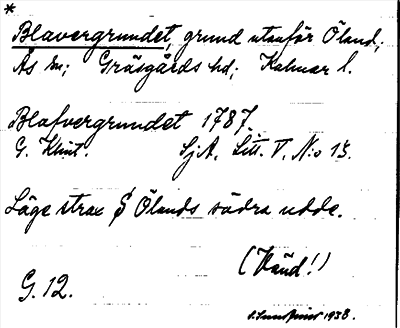 *
Blavergrundet, grund utanför Öland;
Ås sn; Gräsgårds hd; Kalmar l.
Blafvergrundet 1787.
G. Klint. SjA. Litt. V. N:o 13.
Läge strax S Ölands södra udde.
(Känd!)
G. 12.
1938.